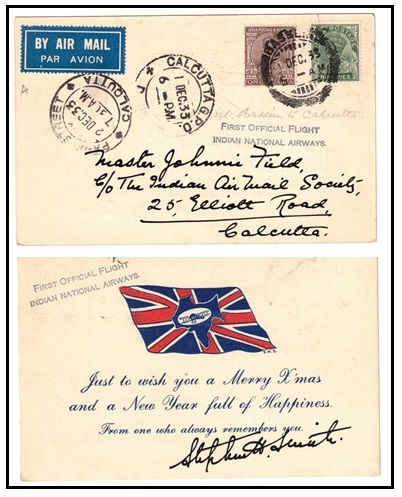 BY AIR MAIL
PAR AVION
CALCUTTA G.P.O.
1 DEC. 33
6 - PM
CALCUTTA
2 DEC. 33
7.31 A.M.
STREET
A
INDIA POSTAGE
DEC. 33
to Calcutta.
FIRST OFFICIAL FLIGHT
INDIAN NATIONAL AIRWAYS.
Master Johnnie Field,
C/o The Indian Air Mail Society,
25, Elliott Road,
Calcutta.
FIRST OFFICIAL FLIGHT
INDIAN NATIONAL AIRWAYS.
Just to wish you a Merry X'mas
and a New Year full of Happiness.
From one who always remembers you.
Stephen H. Smith.